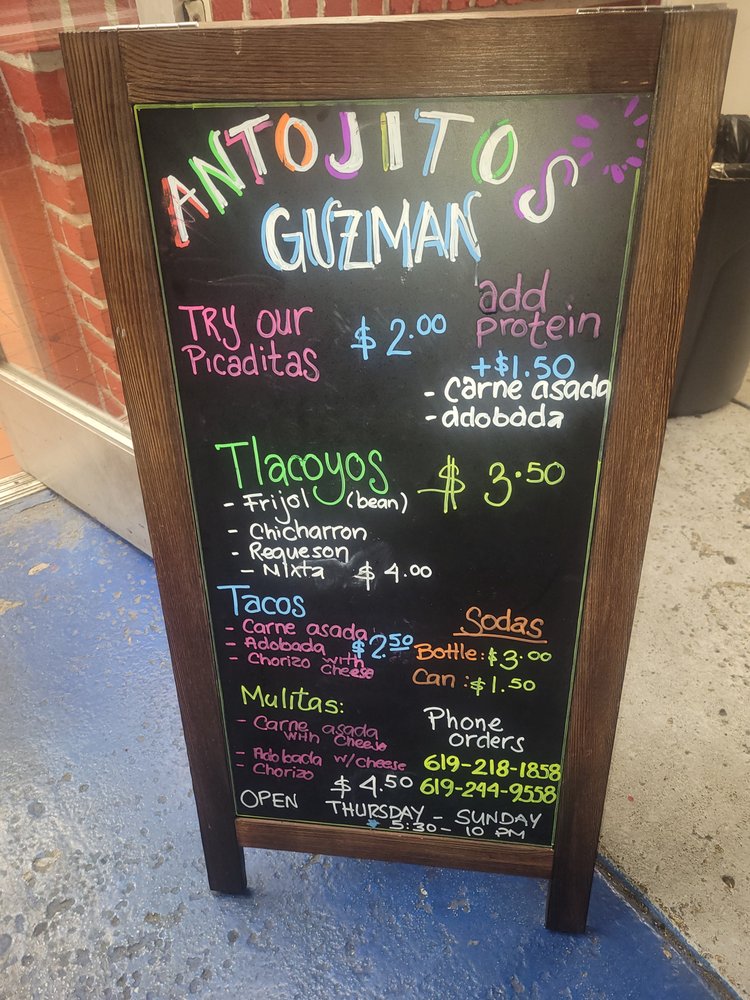 ANTOJITOS
GUZMAN
TRY our
Picaditas
$ 2.00
add
protein
+$1.50
- Carne asada
- adobada
Tlacoyos
$ 3.50
- Frijol (bean)
- Chicharron
- Requeson
- Mixta $ 4.00
Tacos
- Carne asada
- Adobada $2.50
- Chorizo with
Cheese
Sodas
Bottle: $3.00
Can : $1.50
Mulitas:
- Carne asada
with Cheese
- Adobada w/cheese
- Chorizo
$ 4.50
Phone
orders
619-218-1858
619-244-9558
OPEN THURSDAY - SUNDAY
5:30 - 10 PM